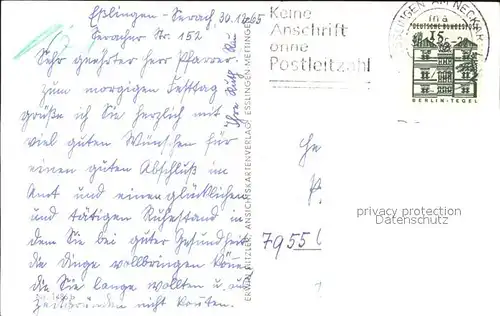 Eßlingen - Serach, 30.12.65
Seracher Str. 152
Sehr geehrter Herr Pfarrer.
zum morgigen Festtag
grüße ich Sie herzlich mit
viel guten Wünschen für
einen guten Abschluß im
Amt und einen glücklichen
und tätigen Ruhestand in
dem Sie bei guter Gesundheit
die Dinge vollbringen können
die Sie lange wollten u. aus
Zeitgründen nicht konnten.
Ihre Ruth
ERWIN BITZLER, ANSICHTSKARTENVERLAG, ESSLINGEN METTINGEN
Keine
Anschrift
ohne
Postleitzahl
ESSLINGEN AM NECKAR
DEUTSCHE BUNDESPOST
15
BERLIN-TEGEL
He
P.
7955
privacy protection
Datenschutz